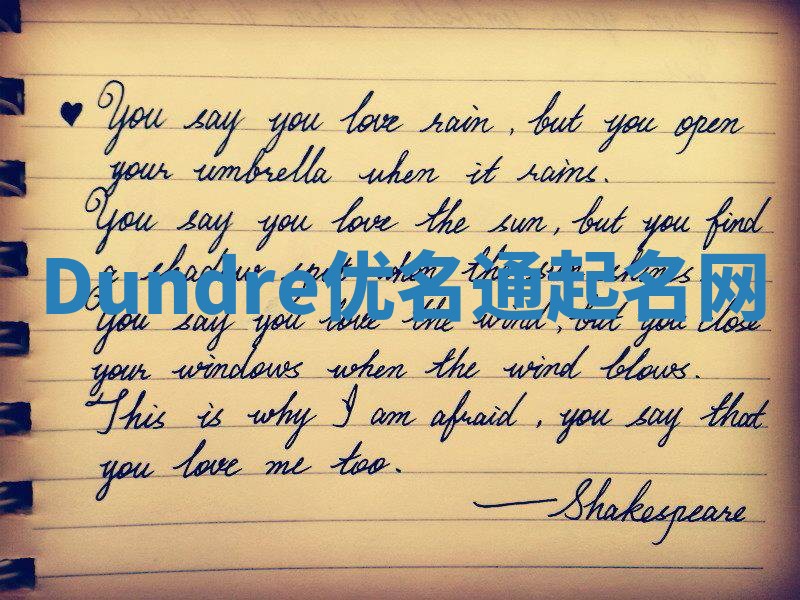 ♥ You say you love rain, but you open
your umbrella when it rains.
You say you love the sun, but you find
a shadow spot when the sun shines
Dundre优名通起名网
You say you love the wind, but you close
your windows when the wind blows.
This is why I am afraid, you say that
you love me too.
—Shakespeare